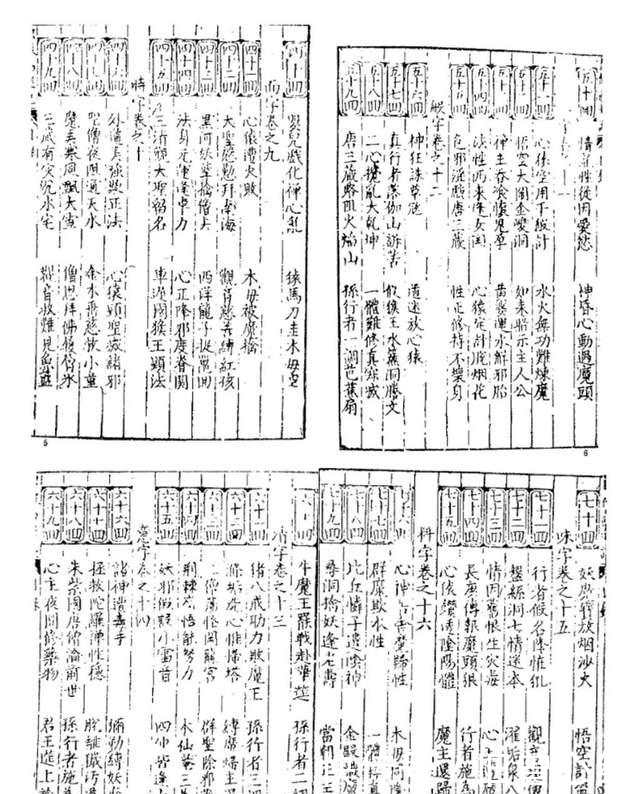 四十回 嬰兒戲化禪心亂 猿馬刀圭木母空
面字卷之九
四十一回 心猿遭火敗 木母被魔擒
四十二回 大聖慇懃拜南海 觀音慈善縛紅孩
四十三回 黑河妖孽擒僧去 西洋龍子捉鼉回
四十四回 法身元運逢車力 心正降邪度脊關
四十五回 三清觀大聖留名 車遲國猴王顯法
時字卷之十
四十六回 外道弄強欺正法 心猿顯聖滅諸邪
四十七回 聖僧夜阻通天水 金木垂慈救小童
四十八回 魔弄寒風飄大雪 僧思拜佛履層冰
四十九回 三藏有災沉水宅 觀音救難現魚籃
5
五十回 情亂性從因愛慾 神昏心動遇魔頭
五十一回 心猿空用千般計 水火無功難煉魔
五十二回 悟空大鬧金㘣洞 如來暗示主人公
五十三回 禪主吞飡懷鬼孕 黃婆運水解邪胎
五十四回 法性西來逢女國 心猿定計脫烟花
五十五回 色邪淫戲唐三藏 性正修持不壞身
卷之十二
五十六回 神狂誅草寇 道迷放心猿
五十七回 真行者落伽山訴苦 假猴王水簾洞謄文
五十八回 二心攪亂大乾坤 一體難修真寂滅
五十九回 唐三藏路阻火焰山 孫行者一調芭蕉扇
6
六十回 牛魔王罷戰赴華筵 孫行者二
清字卷之十三
六十一回 猪八戒助力敗魔王 孫行者三
六十二回 滌垢洗心惟掃塔 縛魔歸主
六十三回 二僧蕩怪鬧龍宮 群聖除邪
六十四回 荊棘嶺悟能努力 木仙菴三
六十五回 妖邪假設小雷音 四
意字卷之十四
六十六回 諸神遭毒手 彌勒縛妖
六十七回 拯救陀羅禪性穩 脫離穢污
六十八回 朱紫國唐僧論前世 孫行者施
六十九回 心主夜間修藥物 君王筵上
七十回 妖魔寶放烟沙火 悟空計
味字卷之十五
七十一回 行者假名降怪犼 觀
七十二回 盤絲洞七情迷本 濯垢泉八
七十三回 情因舊恨生災毒 心主
七十四回 長庚傳報魔頭狠 行者施為
七十五回 心猿鑽透陰陽體 魔主還歸
料字卷之十六
七十六回 心神居舍魔歸性 木母同降
七十七回 群魔欺本性 一體拜真
七十八回 比丘憐子遣陰神 金殿識魔
七十九回 尋洞擒妖逢老壽 當朝正主